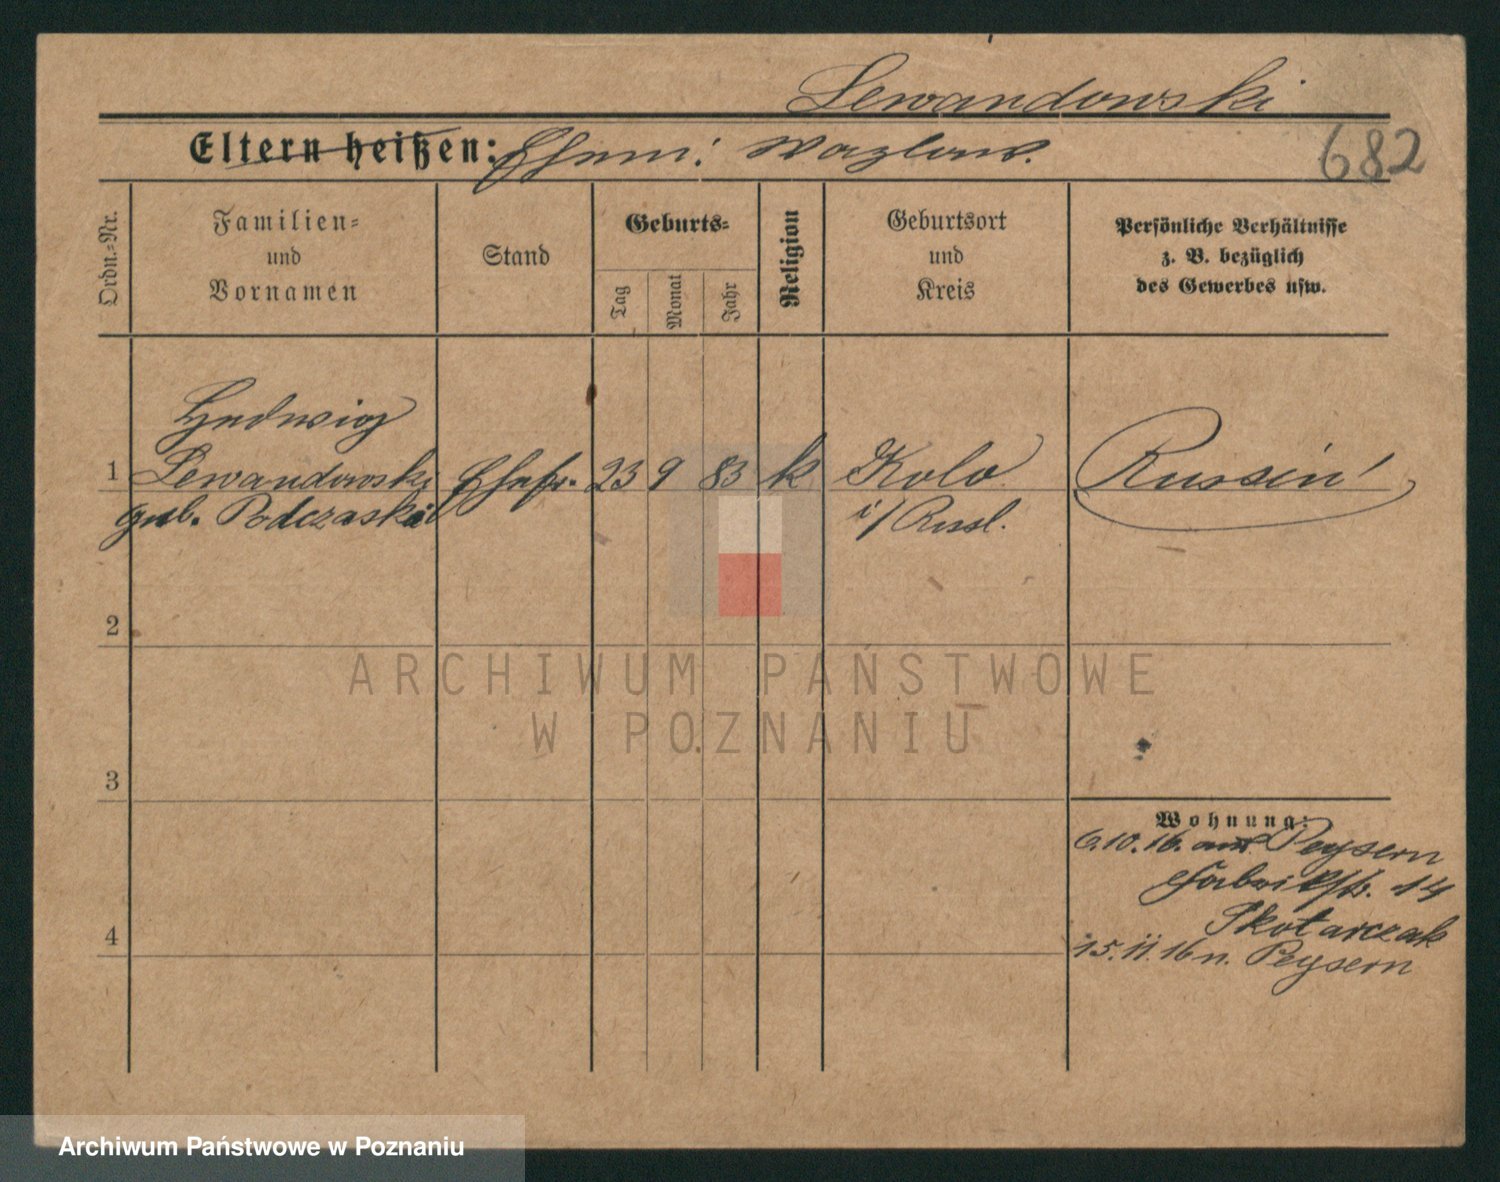 Lewandowski
Eltern heißen: Ehem: Wazlaw.
682
Ordn.-Nr.
Familien-
und
Vornamen
Stand
Geburts-
Tag
Monat
Jahr
Religion
Geburtsort
und
Kreis
Persönliche Verhältnisse
z. B. bezüglich
des Gewerbes usw.
Hedwig
1 Lewandowski Ehefr. 23 9 83 k Kolo Russin!
geb. Podczaski i/Russl.
2
3
4
Wohnung:
6.10.16. aus Peysern
Fabrikstr. 14
Skotarczak
15.11.16 n. Peysern
ARCHIWUM PAŃSTWOWE
W POZNANIU
Archiwum Państwowe w Poznaniu